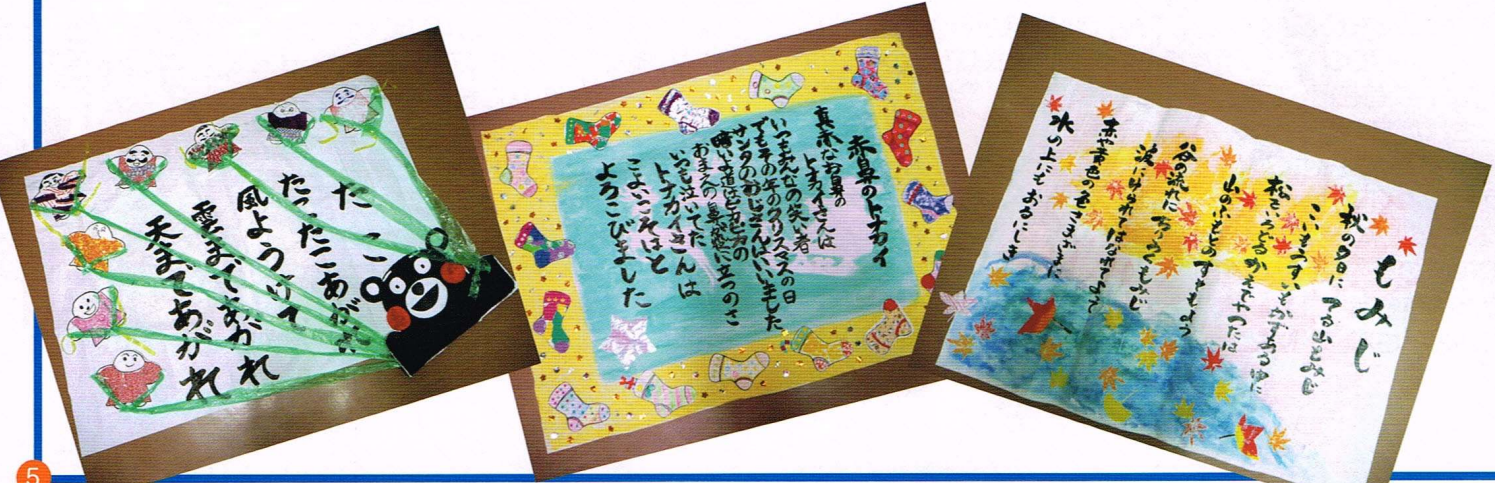 たこ
たこたこあがれ
風ようけて
雲まであがれ
天まであがれ
赤鼻のトナカイ
真赤なお鼻の
トナカイさんは
いつもみんなの笑い者
でもその年のクリスマスの日
サンタのおじさんはいいました
暗い夜道はピカピカの
おまえの鼻が役に立つのさ
いつも泣いてた
トナカイさんは
こよいこそはと
よろこびました
もみじ
秋の夕日に てる山もみじ
こいもうすいもかずある中に
松をいろどるかえでやつたは
山のふもとのすそもよう
谷の流れに ちりうくもみじ
波にゆられて はなれてよって
赤や黄色の色さまざまに
水の上にも おるにしき
5